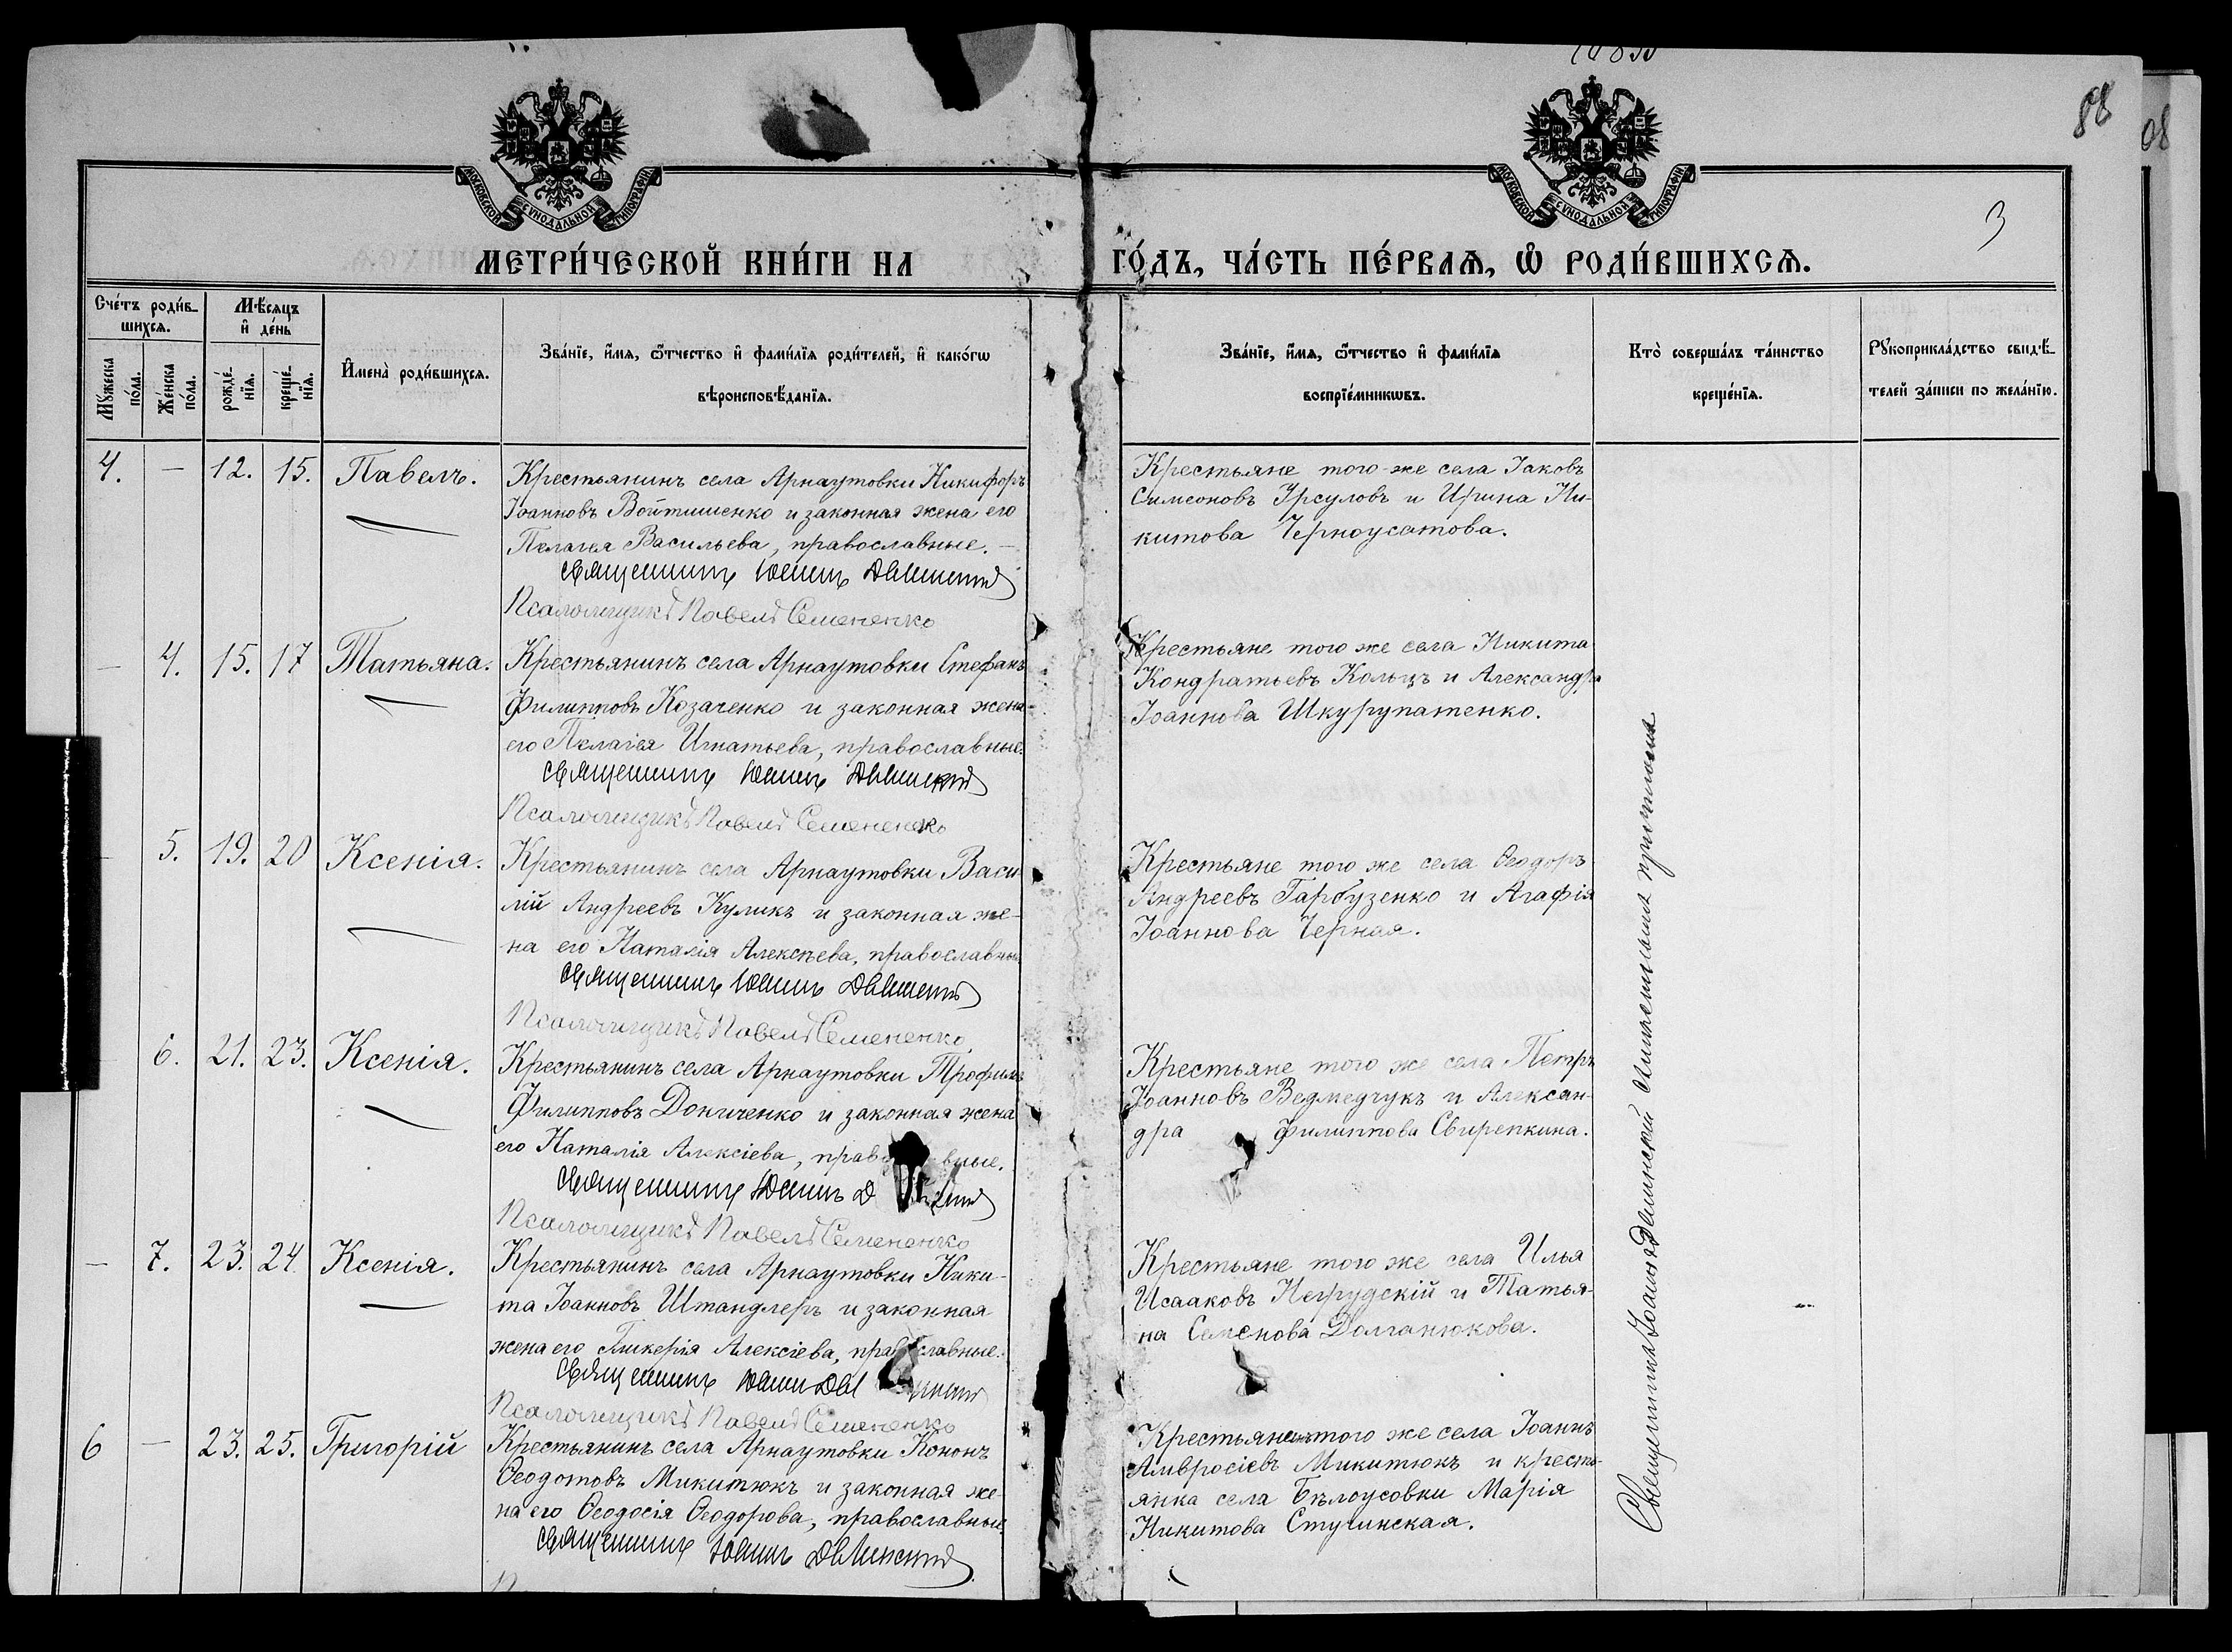 88
08
3
МОСКОВСКОЙ СѴНОДАЛЬНОЙ ТИПОГРАФІИ
МОСКОВСКОЙ СѴНОДАЛЬНОЙ ТИПОГРАФІИ
МЕТРИ́ЧЕСКОЙ КНИ́ГИ НА ГО́ДЪ, ЧА́СТЬ ПЕ́РВАЯ, Ѽ РОДИ́ВШИХСЯ.
Сче́тъ роди́в-
шихся.
Мꙋжеска
по́ла.
Же́нска
по́ла.
Мѣ́сяцъ
и҆ де́нь
рожде́-
нїѧ.
креще́-
нїѧ.
И҆мена̀ роди́вшихся.
Зва́нїе, и҆́мѧ, ѻ҆́тчество и҆ фами́лїѧ роди́телей, и҆ како́гѡ
вѣроисповѣ́данїѧ.
Зва́нїе, и҆́мѧ, ѻ҆́тчество и҆ фами́лїѧ
воспрїе́мникѡвъ.
Кто̀ соверша́лъ та́инство
креще́нїѧ.
Рꙋкоприкла́дство свидѣ́-
телей за́писи по жела́нїю.
4. — 12. 15. Павелъ.
Крестьянинъ села Арнаутовки Никифоръ
Іоанновъ Войтишенко и законная жена его
Пелагея Васильева, православные. —
Священникъ Іоаннъ Двинский
Псаломщикъ Павелъ Семененко
Крестьяне того-же села Іаковъ
Симеоновъ Урсуловъ и Ирина Ни-
китова Черноусатова.
— 4. 15. 17 Татьяна.
Крестьянинъ села Арнаутовки Стефанъ
Филипповъ Козаченко и законная жена
его Пелагея Игнатьева, православные.
Священникъ Іоаннъ Двинский
Псаломщикъ Павелъ Семененко
Крестьяне того же села Никита
Кондратьевъ Кольцъ и Александра
Іоаннова Шкурупатенко.
— 5. 19. 20 Ксенія.
Крестьянинъ села Арнаутовки Васи
лій Андреевъ Куликъ и законная же-
на его Наталія Алексѣева, православные
Священникъ Іоаннъ Двинский
Псаломщикъ Павелъ Семененко
Крестьяне того же села Ѳеодоръ
Андреевъ Гарбузенко и Агафія
Іоаннова Черная.
6. 21. 23. Ксенія.
Крестьянинъ села Арнаутовки Трофимъ
Филипповъ Докиченко и законная жена
его Наталія Алексіева, прав вные.
Священникъ Іоаннъ Д
Псаломщикъ Павелъ Семененко
Крестьяне того же села Петръ
Іоанновъ Ведмедчукъ и Алексан-
дра Филиппова Свирепкина.
— 7. 23. 24. Ксенія.
Крестьянинъ села Арнаутовки Ники-
та Іоанновъ Штандлеръ и законная
жена его Гликерія Алексіева, православные.
Священникъ Іоаннъ
Псаломщикъ Павелъ Семененко
Крестьяне того же села Илья
Исааковъ Негрудскій и Татья-
на Семенова Долганюкова.
6 — 23. 25. Григорій
Крестьянинъ села Арнаутовки Кононъ
Ѳеодотовъ Микитюкъ и законная же-
на его Ѳеодосія Ѳеодорова, православные.
Священникъ Іоаннъ Двинский
Крестьянинъ того же села Іоаннъ
Амвросіевъ Микитюкъ и кресть-
янка села Бѣлоусовки Марія
Никитова Стучинская.
Священникъ Іоаннъ